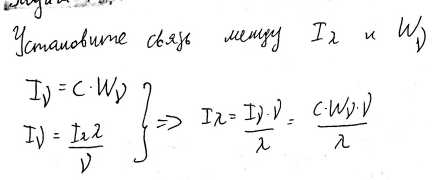 Установите связь между Iλ и Wν
Iν = C·Wν
Iν = Iλ λ / ν } => Iλ = Iν·ν / λ = C·Wν·ν / λ